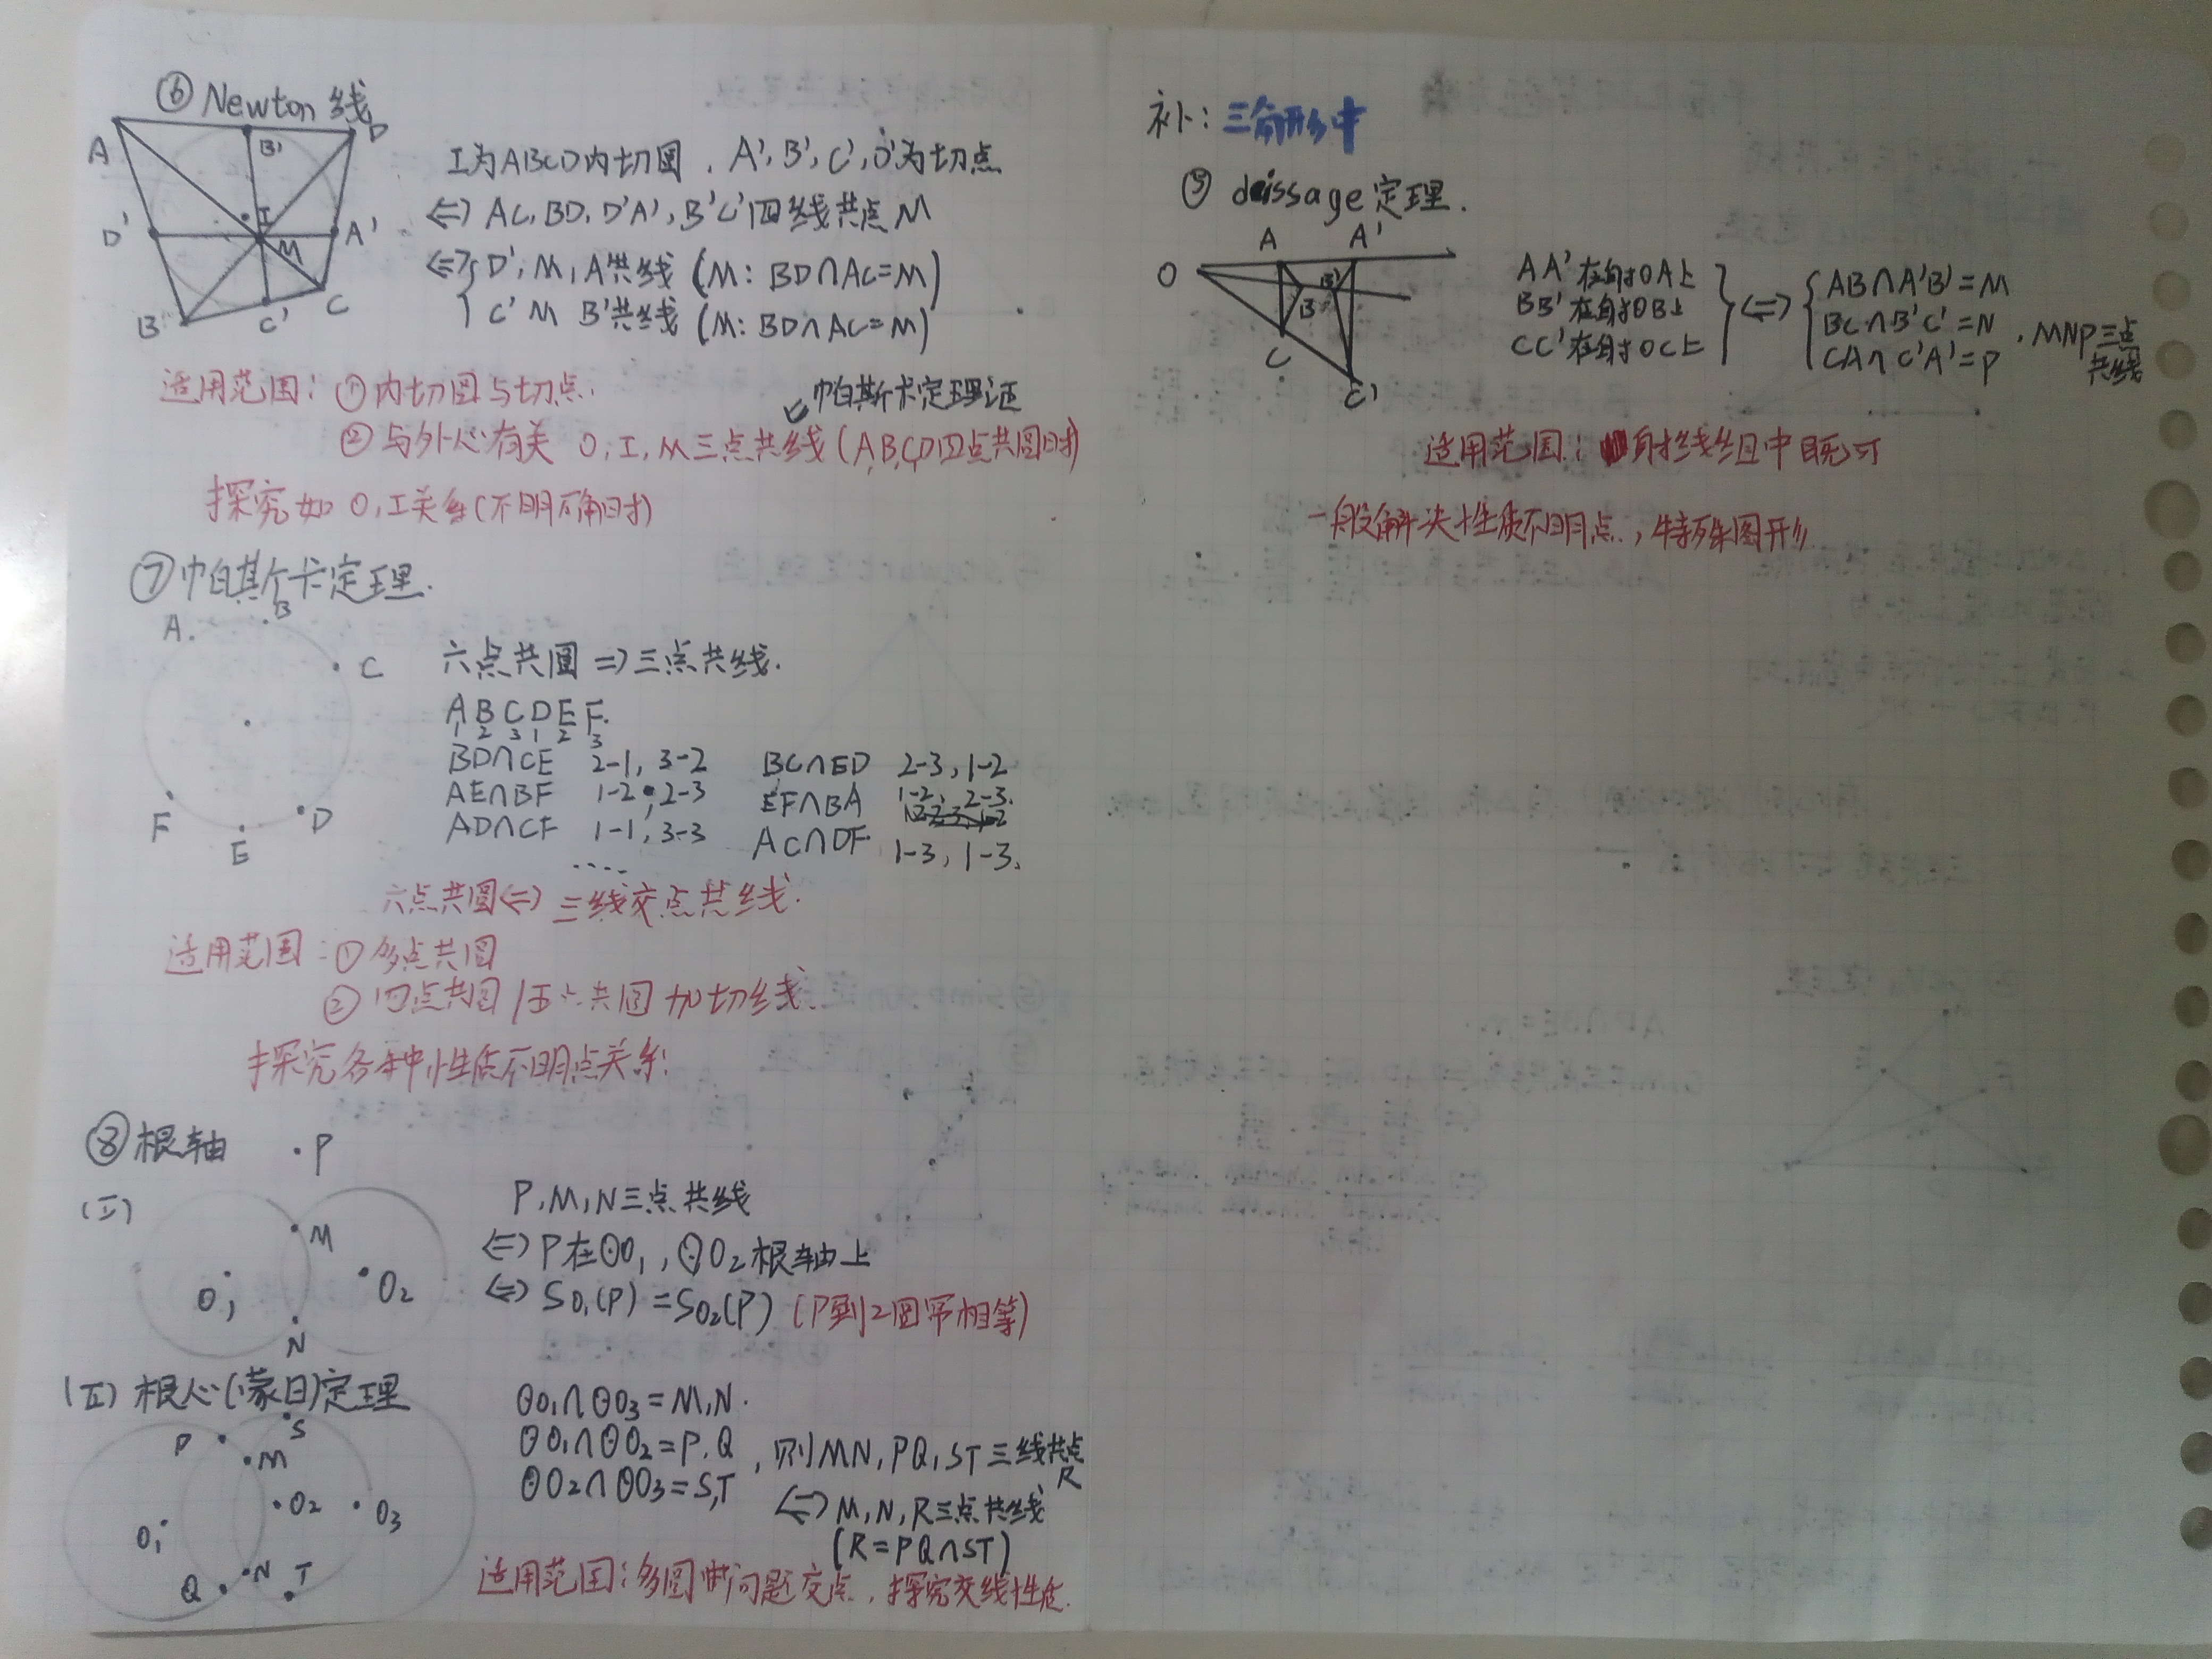 ⑥ Newton 线
A
B'
D
D'
I
M
A'
B
C'
C
I为ABCD内切圆，A', B', C', D'为切点
⇔ AC, BD, D'A', B'C'四线共点M
⇔ { D', M, A'共线 (M: BD∩AC=M)
C' M B'共线 (M: BD∩AC=M)
适用范围: ①内切圆与切点.
↙帕斯卡定理证
②与外心有关 O, I, M三点共线 (A,B,C,D四点共圆时)
探究如 O, I关系(不明确时)
⑦帕斯卡定理.
A.
B
C
D
E
F
六点共圆 ⇒ 三点共线.
A B C D E F.
1 2 3 1 2 3
BD∩CE 2-1, 3-2 BC∩ED 2-3, 1-2
AE∩BF 1-2, 2-3 EF∩BA 1-2, 2-3.
AD∩CF 1-1, 3-3 AC∩DF 1-3, 1-3.
....
六点共圆⇔三线交点共线.
适用范围: ①多点共圆
②四点共圆/五点共圆加切线.
探究各种性质不明点关系.
⑧根轴
·P
(I)
M
O₁
O₂
N
P, M, N三点共线
⇔ P在⊙O₁, ⊙O₂根轴上
⇔ S_{O₁}(P) = S_{O₂}(P) (P到2圆幂相等)
(II) 根心(蒙日)定理
P
S
M
O₂
O₃
O₁
Q
N
T
⊙O₁∩⊙O₃=M,N.
⊙O₁∩⊙O₂=P,Q
⊙O₂∩⊙O₃=S,T
, 则MN, PQ, ST三线共点
R
⇔ M, N, R三点共线
(R=PQ∩ST)
适用范围: 多圆问题交点, 探究交线性质.
补: 三角形中
⑨ deissage定理.
O
A
A'
B
B'
C
C'
AA'在射OA上
BB'在射OB上
CC'在射OC上
} ⇔ {
AB∩A'B'=M
BC∩B'C'=N
CA∩C'A'=P
, MNP三点
共线
适用范围: 射线组中既可
一般解决性质不明点, 特殊图形